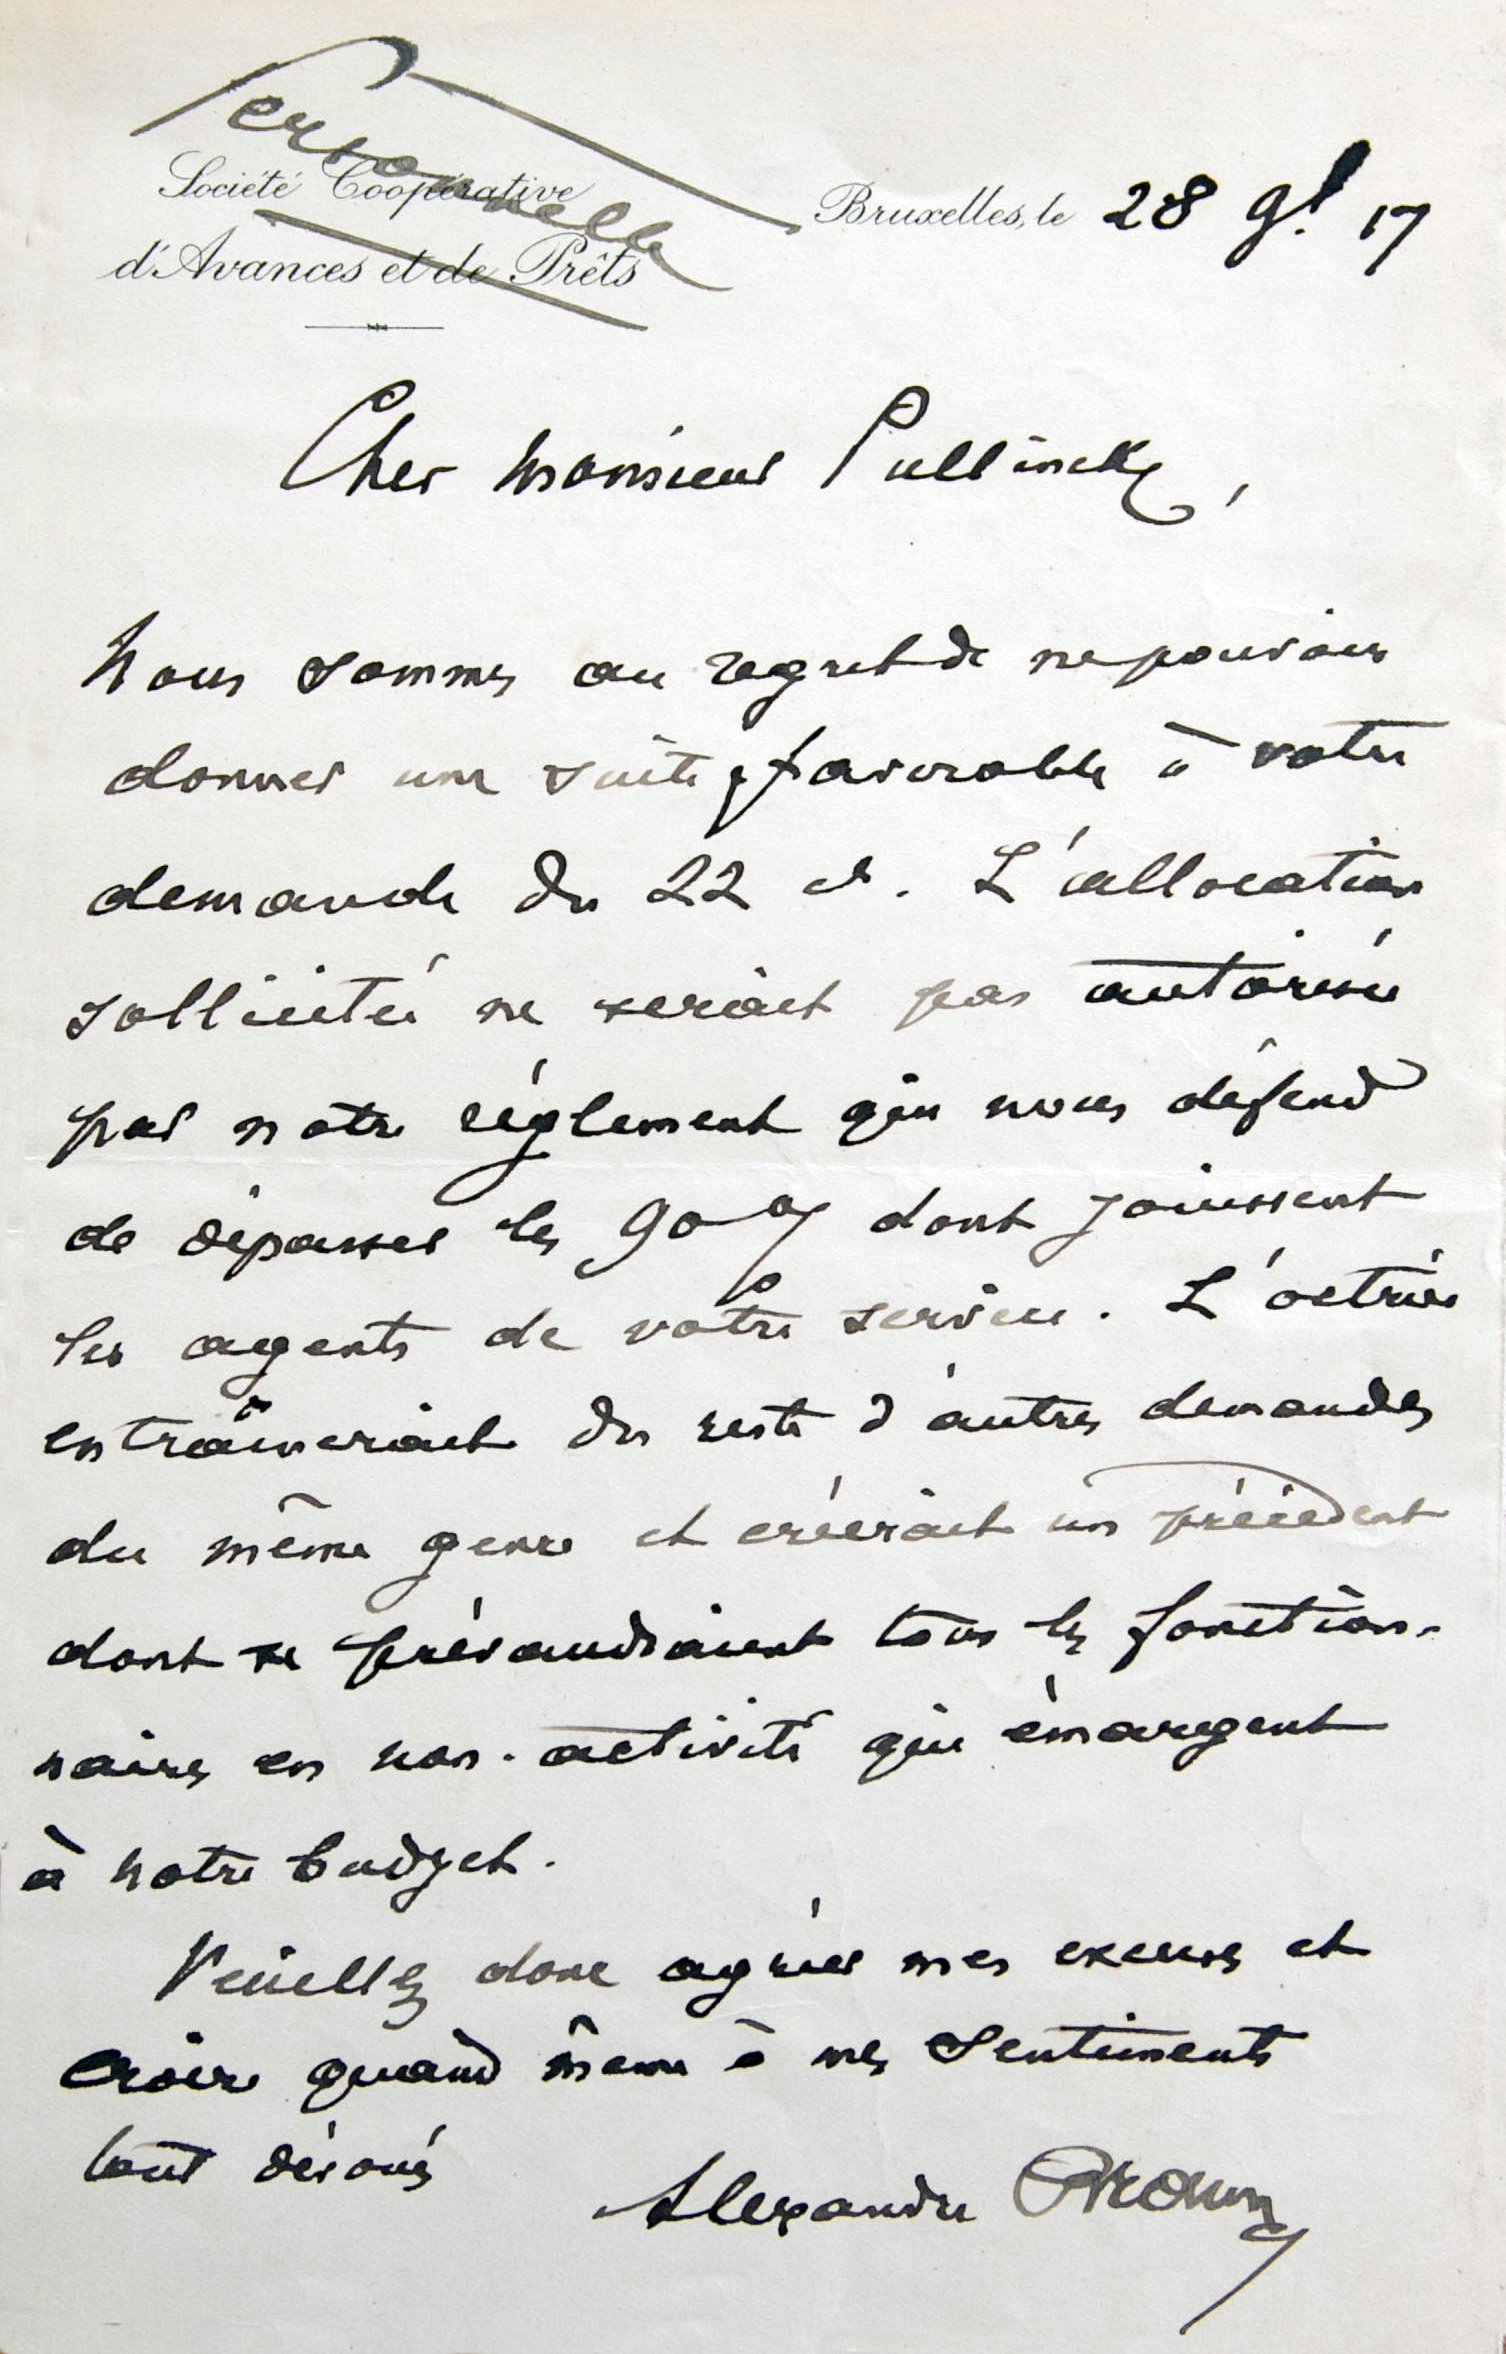 Personnelle
Société Coopérative
d'Avances et de Prêts
Bruxelles, le 28 9b 17
Cher Monsieur Pullinckx,
Nous sommes au regret de ne pouvoir
donner une suite favorable à votre
demande du 22 ct. L'allocation
sollicitée ne serait pas autorisée
par notre règlement qui nous défend
de dépasser les 90 % dont jouissent
les agents de votre service. L'octroi
entraînerait du reste d'autres demandes
du même genre et créerait un précédent
dont se prévaudraient tous les fonction-
naires en non-activité qui émargent
à notre budget.
Veuillez donc agréer mes excuses et
croire quand même à mes sentiments
tout dévoués
Alexandre Braun